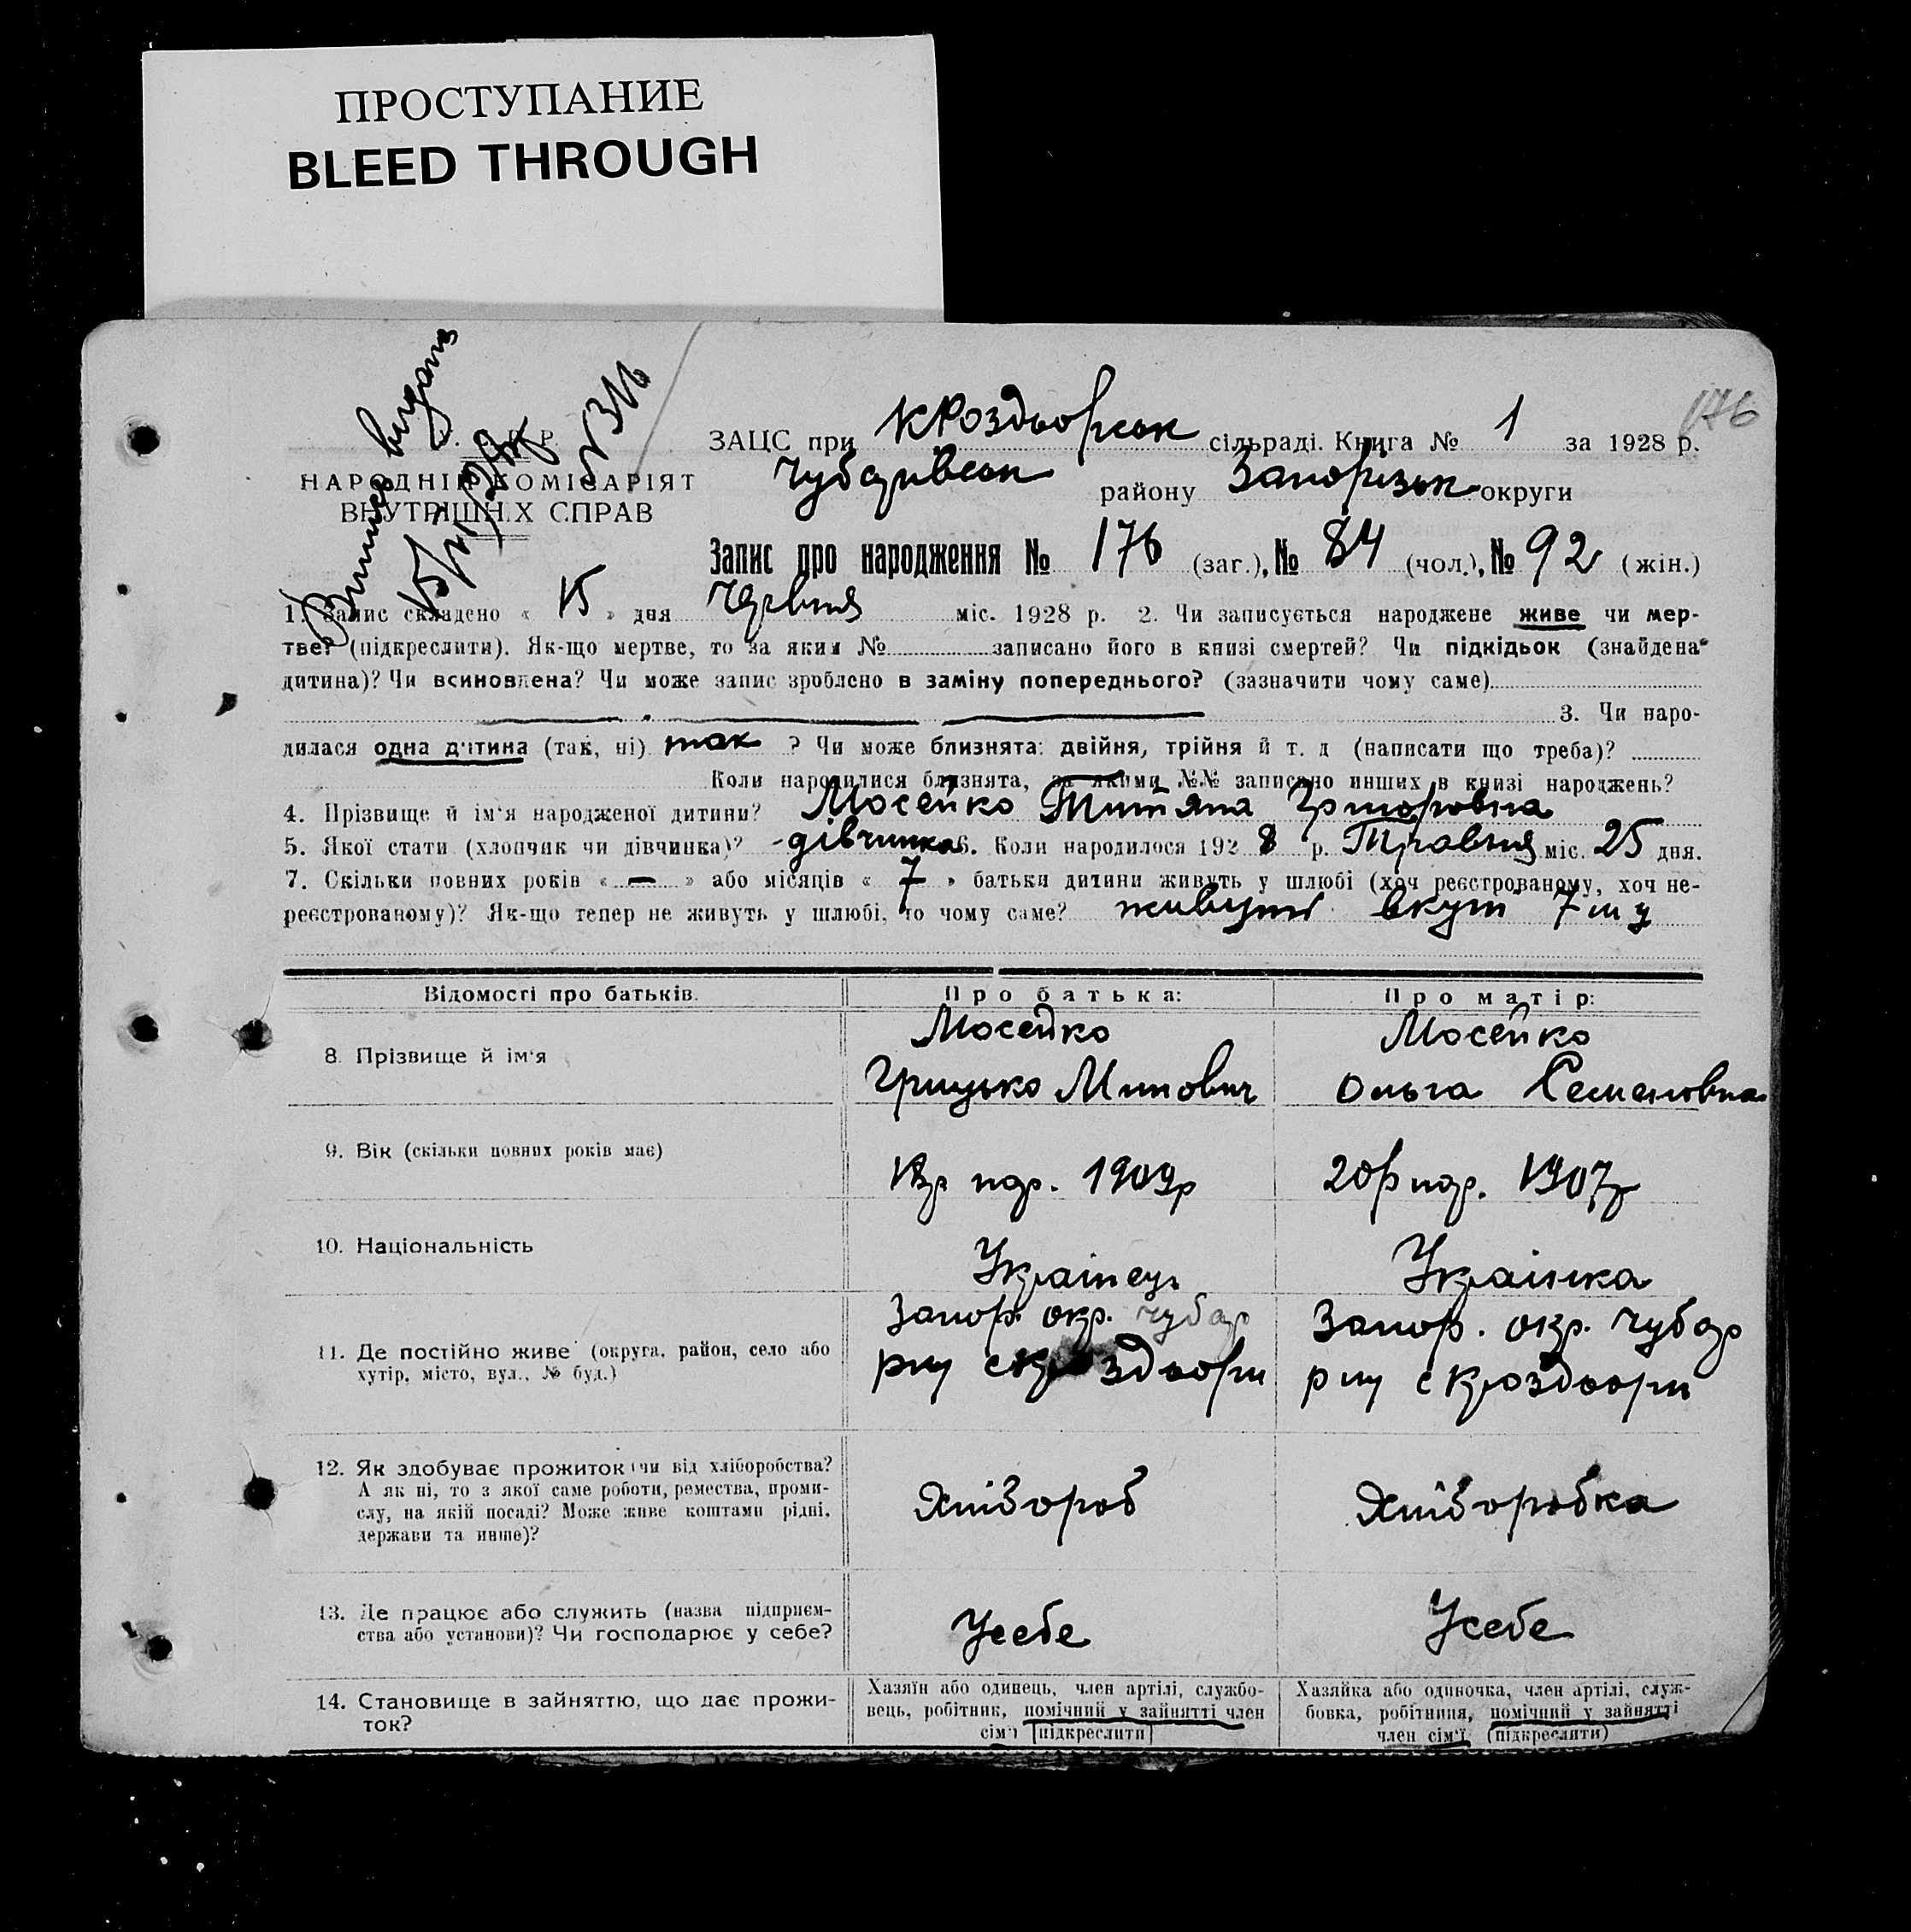 ПРОСТУПАНИЕ
BLEED THROUGH
176
Р.
НАРОДНІЙ КОМІСАРІЯТ
ВНУТРІШНІХ СПРАВ
видана
ЗАЦС при КРоздьорськ сільраді. Книга № 1 за 1928 р.
Чубарівськ району Запорізьк округи
Запис про народження № 176 (заг.), № 84 (чол.), № 92 (жін.)
1. Запис складено « 15 » дня Червня міс. 1928 р. 2. Чи записується народжене живе чи мер-
тве? (підкреслити). Як-що мертве, то за яким № записано його в книзі смертей? Чи підкідьок (знайдена
дитина)? Чи всиновлена? Чи може запис зроблено в заміну попереднього? (зазначити чому саме)
3. Чи наро-
дилася одна дитина (так, ні) так ? Чи може близнята: двійня, трійня й т. д (написати що треба)?
Коли народилися близнята, за якими №№ записано инших в книзі народжень?
4. Прізвище й ім'я народженої дитини? Мосейко Титяна
5. Якої стати (хлопчик чи дівчинка)? дівчинка 6. Коли народилося 192 8 р. Травня міс. 25 дня.
7. Скільки повних років « — » або місяців « 7 » батьки дитини живуть у шлюбі (хоч реєстрованому, хоч не-
реєстрованому)? Як-що тепер не живуть у шлюбі, то чому саме? живуть вкуп 7 м ц
Відомості про батьків.
Про батька:
Про матір:
8. Прізвище й ім'я
Мосейко
Грицько Минович
Мосейко
Ольга Семеновна
9. Вік (скільки повних років має)
нар. 1909р
20р нар. 1907р
10. Національність
Украінець
Украінка
11. Де постійно живе (округа, район, село або
хутір, місто, вул., № буд.)
Запор. окр. Чубар
рну с Кроздьори
Запор. окр. Чубар
рну с Кроздьори
12. Як здобуває прожиток (чи від хліборобства?
А як ні, то з якої саме роботи, ремества, проми-
слу, на якій посаді? Може живе коштами рідні,
держави та инше)?
Хлібороб
Хліборобка
13. Де працює або служить (назва підприєм-
ства або установи)? Чи господарює у себе?
Усебе
Усебе
14. Становище в зайняттю, що дає прожи-
ток?
Хазяїн або одинець, член артілі, службо-
вець, робітник, помічний у зайнятті член
сім'ї (підкреслити)
Хазяйка або одиночка, член артілі, служ-
бовка, робітниця, помічний у зайнятті
член сім'ї (підкреслити)